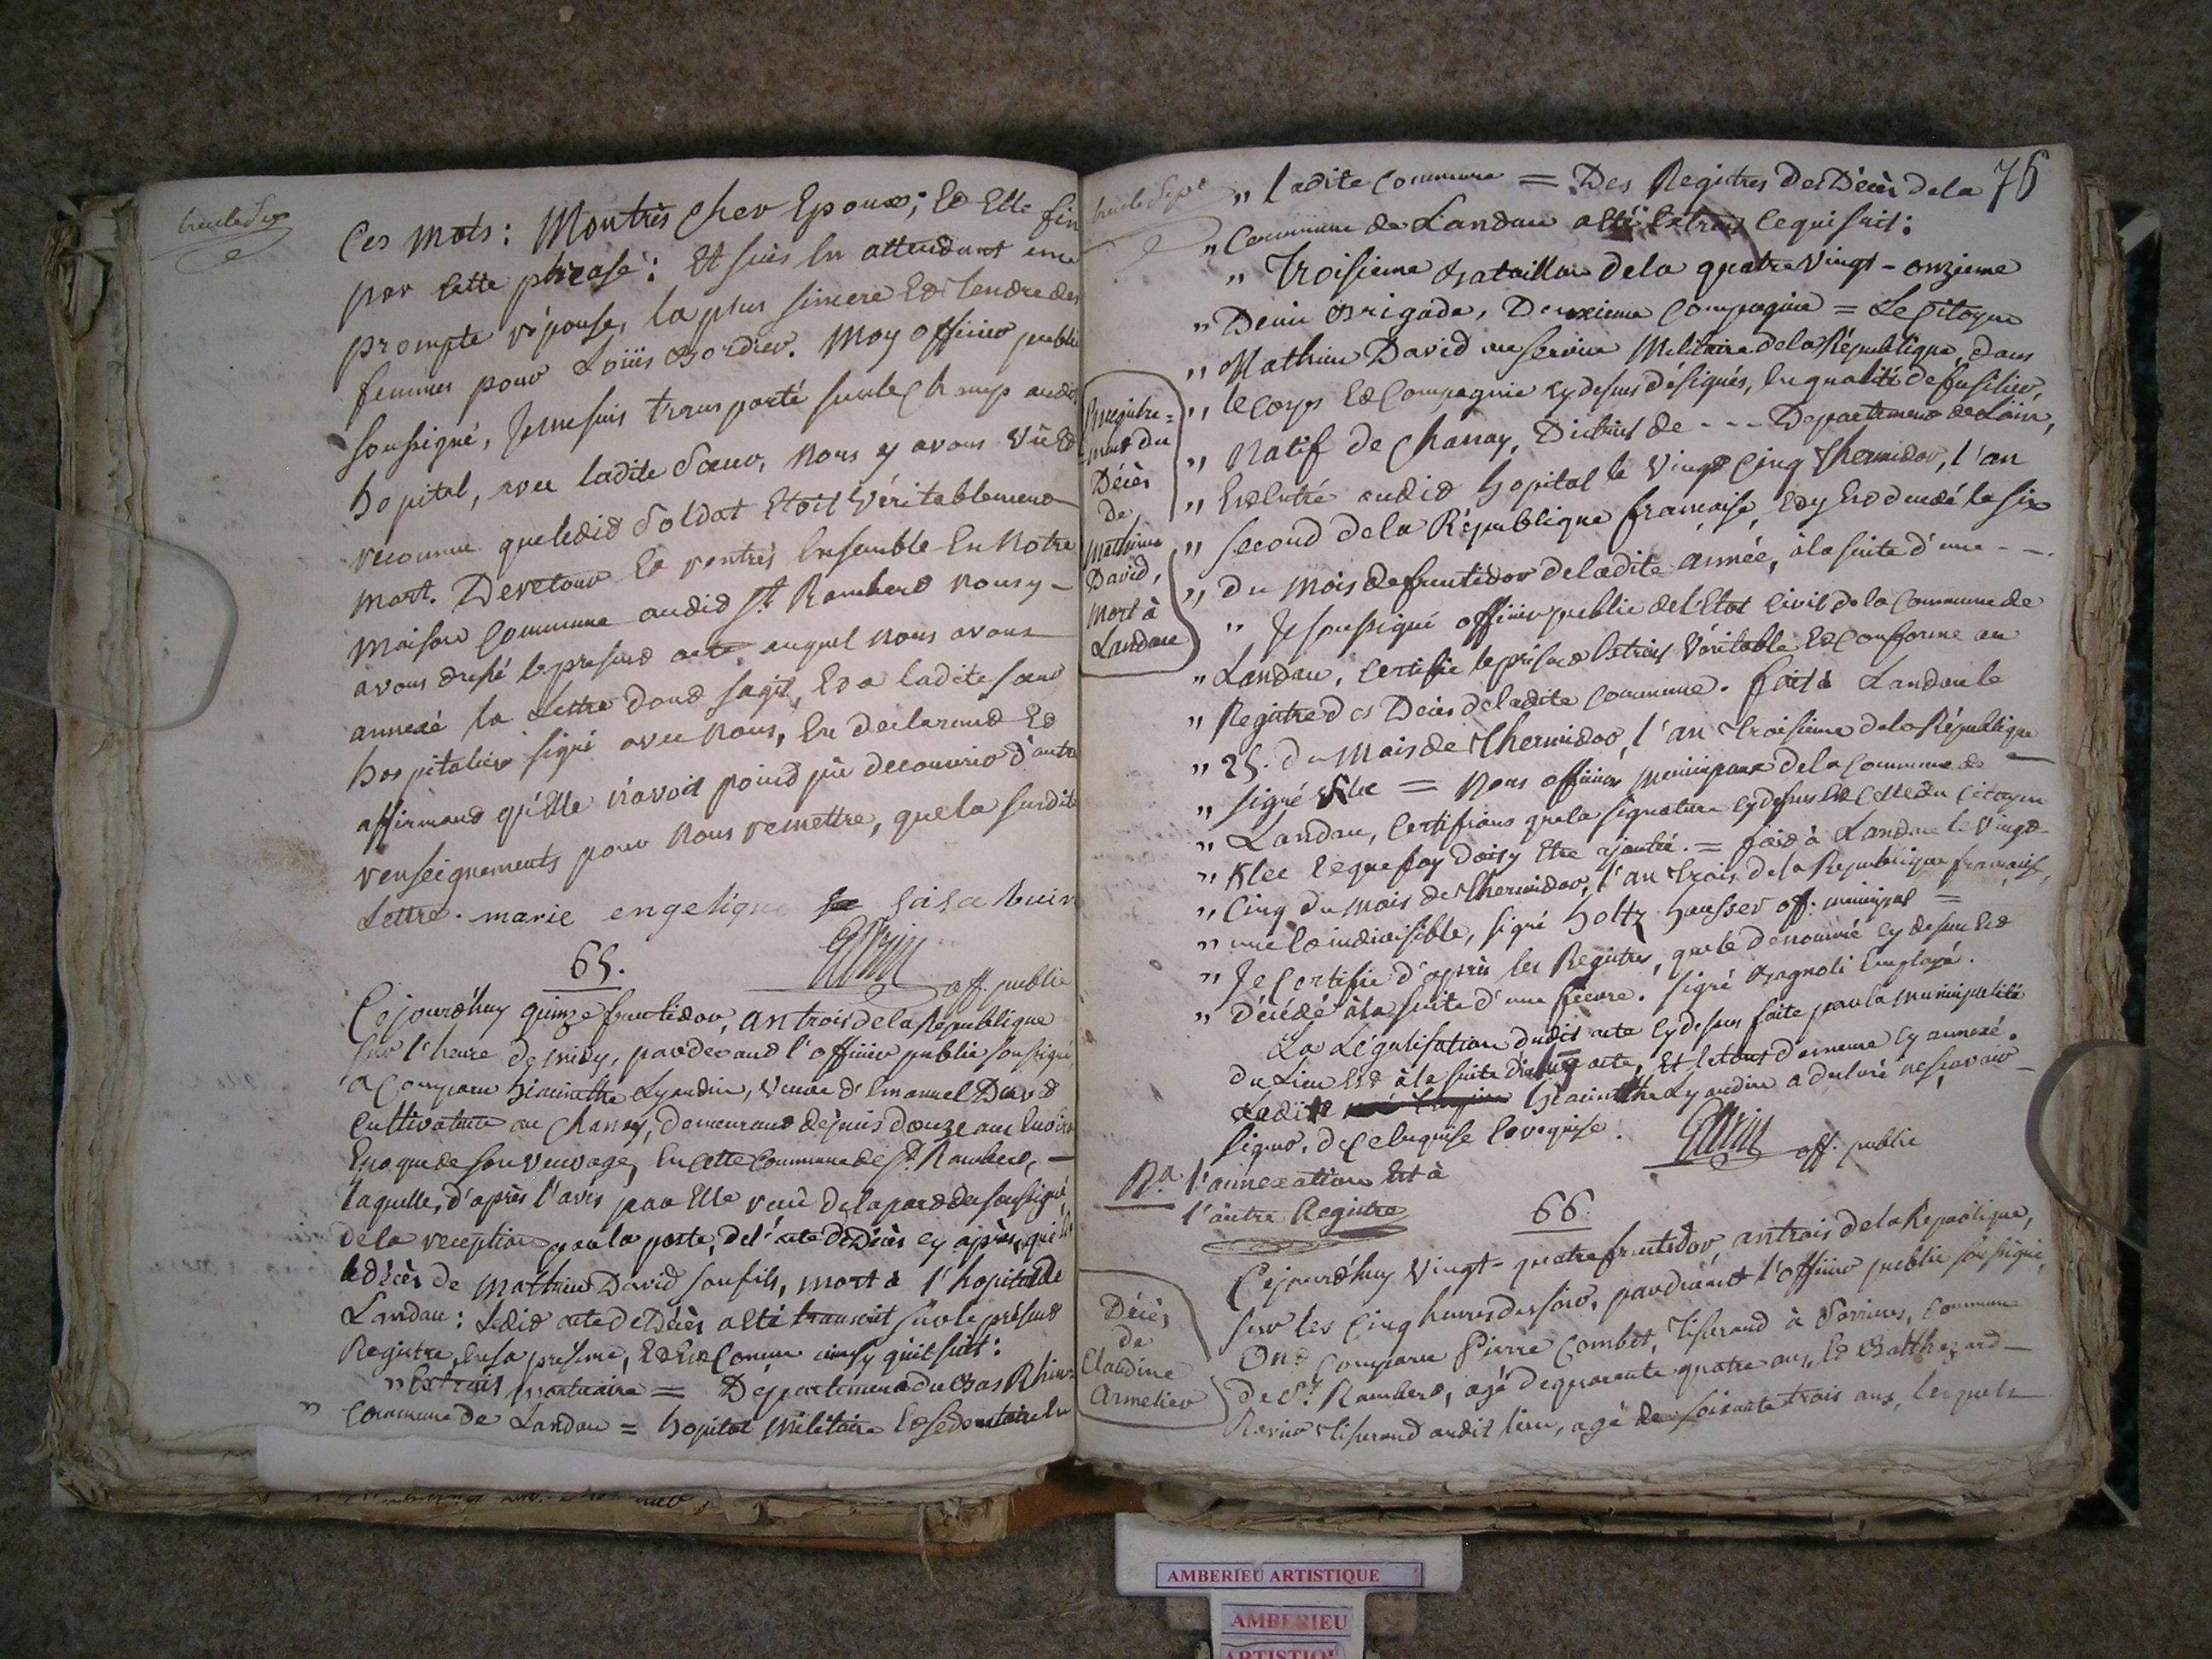 trente Six
Ces mots : Montrès cher Epoux ; Et Elle fin
par Cette phrase : Et suis En attendant une
prompte réponse, la plus sincere Et tendre des
femmes pour Loüis Bordier. Moy officier public
soussigné, Je me suis transporté sur le champ audit
hopital, avec ladite Sœur, nous y avons vû Et
reconnu que ledit Soldat Etoit Véritablement
mort. De retour Et rentrés Ensemble En Notre
maison Commune audit St. Rambert nous y
avons dressé le présent acte auquel nous avons
annexé la Lettre dont s'agit, Et a ladite sœur
hospitaliere signé avec nous, En declarant Et
affirmant qu'Elle n'avoit point pû decouvrir d'autre
renseignements pour nous remettre, que la susdite
Lettre. marie engelique
off. public
65.
Cejourd'huy quinze fructidor, an trois de la République
sur l'heure de midy, pardevant l'officier public soussigné
a Comparu hiacinthe Lyaudin, veuve d'Emanuel David
Cultivateur au Chanay, demeurant depuis douze ans Environ
Epoque de son veuvage, En cette Commune de St. Rambert,
laquelle, d'après l'avis par Elle reçu de la part du soussigné,
de la reception par la poste, de l'acte de Décès cy après, qui
le décès de Mathieu David son fils, mort à l'hopital de
Landau : Ledit acte de Décès a été transcrit sur le présent
Registre, En sa présence, Et Est Conçu ainsy qu'il suit :
" Extrait mortuaire = Département du Bas Rhin =
" Commune de Landau = hopital Militaire Et Sédentaire de
trente Sept
76
" ladite Commune = Des Registres des Décès de la
" Commune de Landau a été Extrait ce qui suit :
" Troisieme Bataillon de la quatre vingt - onzieme
" Demi Brigade, Deuxieme Compagnie = Le Citoyen
" Mathieu David au service Militaire de la République, dans
" le Corps Et Compagnie cy dessus désignés, En qualité de fusilier,
" Natif de Chanay, District de - - - Departement de Lain,
" Est Entré audit hopital le vingt Cinq thermidor, l'an
" second de la République francaise, Et y Est decedé le six
" du mois de fructidor de ladite année, à la suite d'une - -
" Je soussigné officier public de l'Etat Civil de la Commune de
" Landau, Certifie le présent Extrait Véritable Et Conforme au
" Registre des Décès de ladite Commune. fait à Landau le
" 25. du Mois de Thermidor, l'an troisieme de la République
" signé Klee = Nous officiers municipaux de la Commune de
" Landau, Certifions que la signature cy dessus Est Celle du Citoyen
" Klee Et que foy doit y Etre ajoutée. = fait à Landau le vingt
" Cinq du mois de thermidor, l'an trois de la République francaise,
" une Et indivisible, signé holtz hausser off. municipal =
" Je Certifie d'après les Registres, que le dénommé cy dessus Est
" Décédé à la suite d'une fievre. signé Bagnoli Employé.
La Légalisation dudit acte cy dessus faite par la municipalité
du Lieu Est à la suite dudit acte, Et le tout demeure cy annexé.
Ladite hiacinthe Lyaudin a declaré ne sçavoir
signer, de ce Enquise Et requise.
off. public
Na l'annexation Est à
l'autre Registre
Enregistre=
ment du
Décès
de
Mathieu
David,
mort à
Landau
66.
Cejourd'huy vingt - quatre fructidor, an trois de la République,
sur les Cinq heures du soir, pardevant l'officier public soussigné,
Ont Comparu Pierre Combet, Tisserand à Serrieres, Commune
de St. Rambert, agé de quarante quatre ans, Et Balthazard
Tisserand audit lieu, agé de soixante trois ans, lesquels
Décès
de
Claudine
Armelier
AMBERIEU ARTISTIQUE
AMBERIEU
ARTISTIQUE